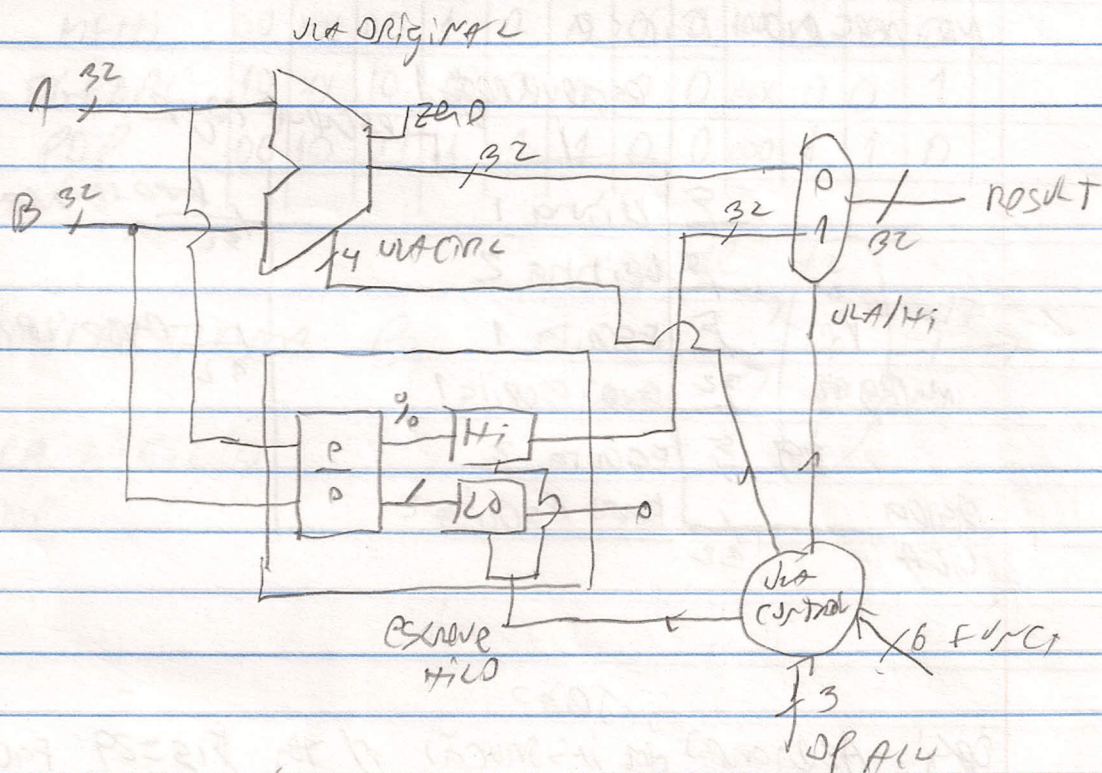 ULA ORIGINAL
A 32
zero
32
B 32
4 ULACTRL
0
1
32
RESULT
32
ULA/Hi
%
Hi
/
LO
ULA
CONTROL
escreve
HiLO
6 FUNCT
3
OPALU